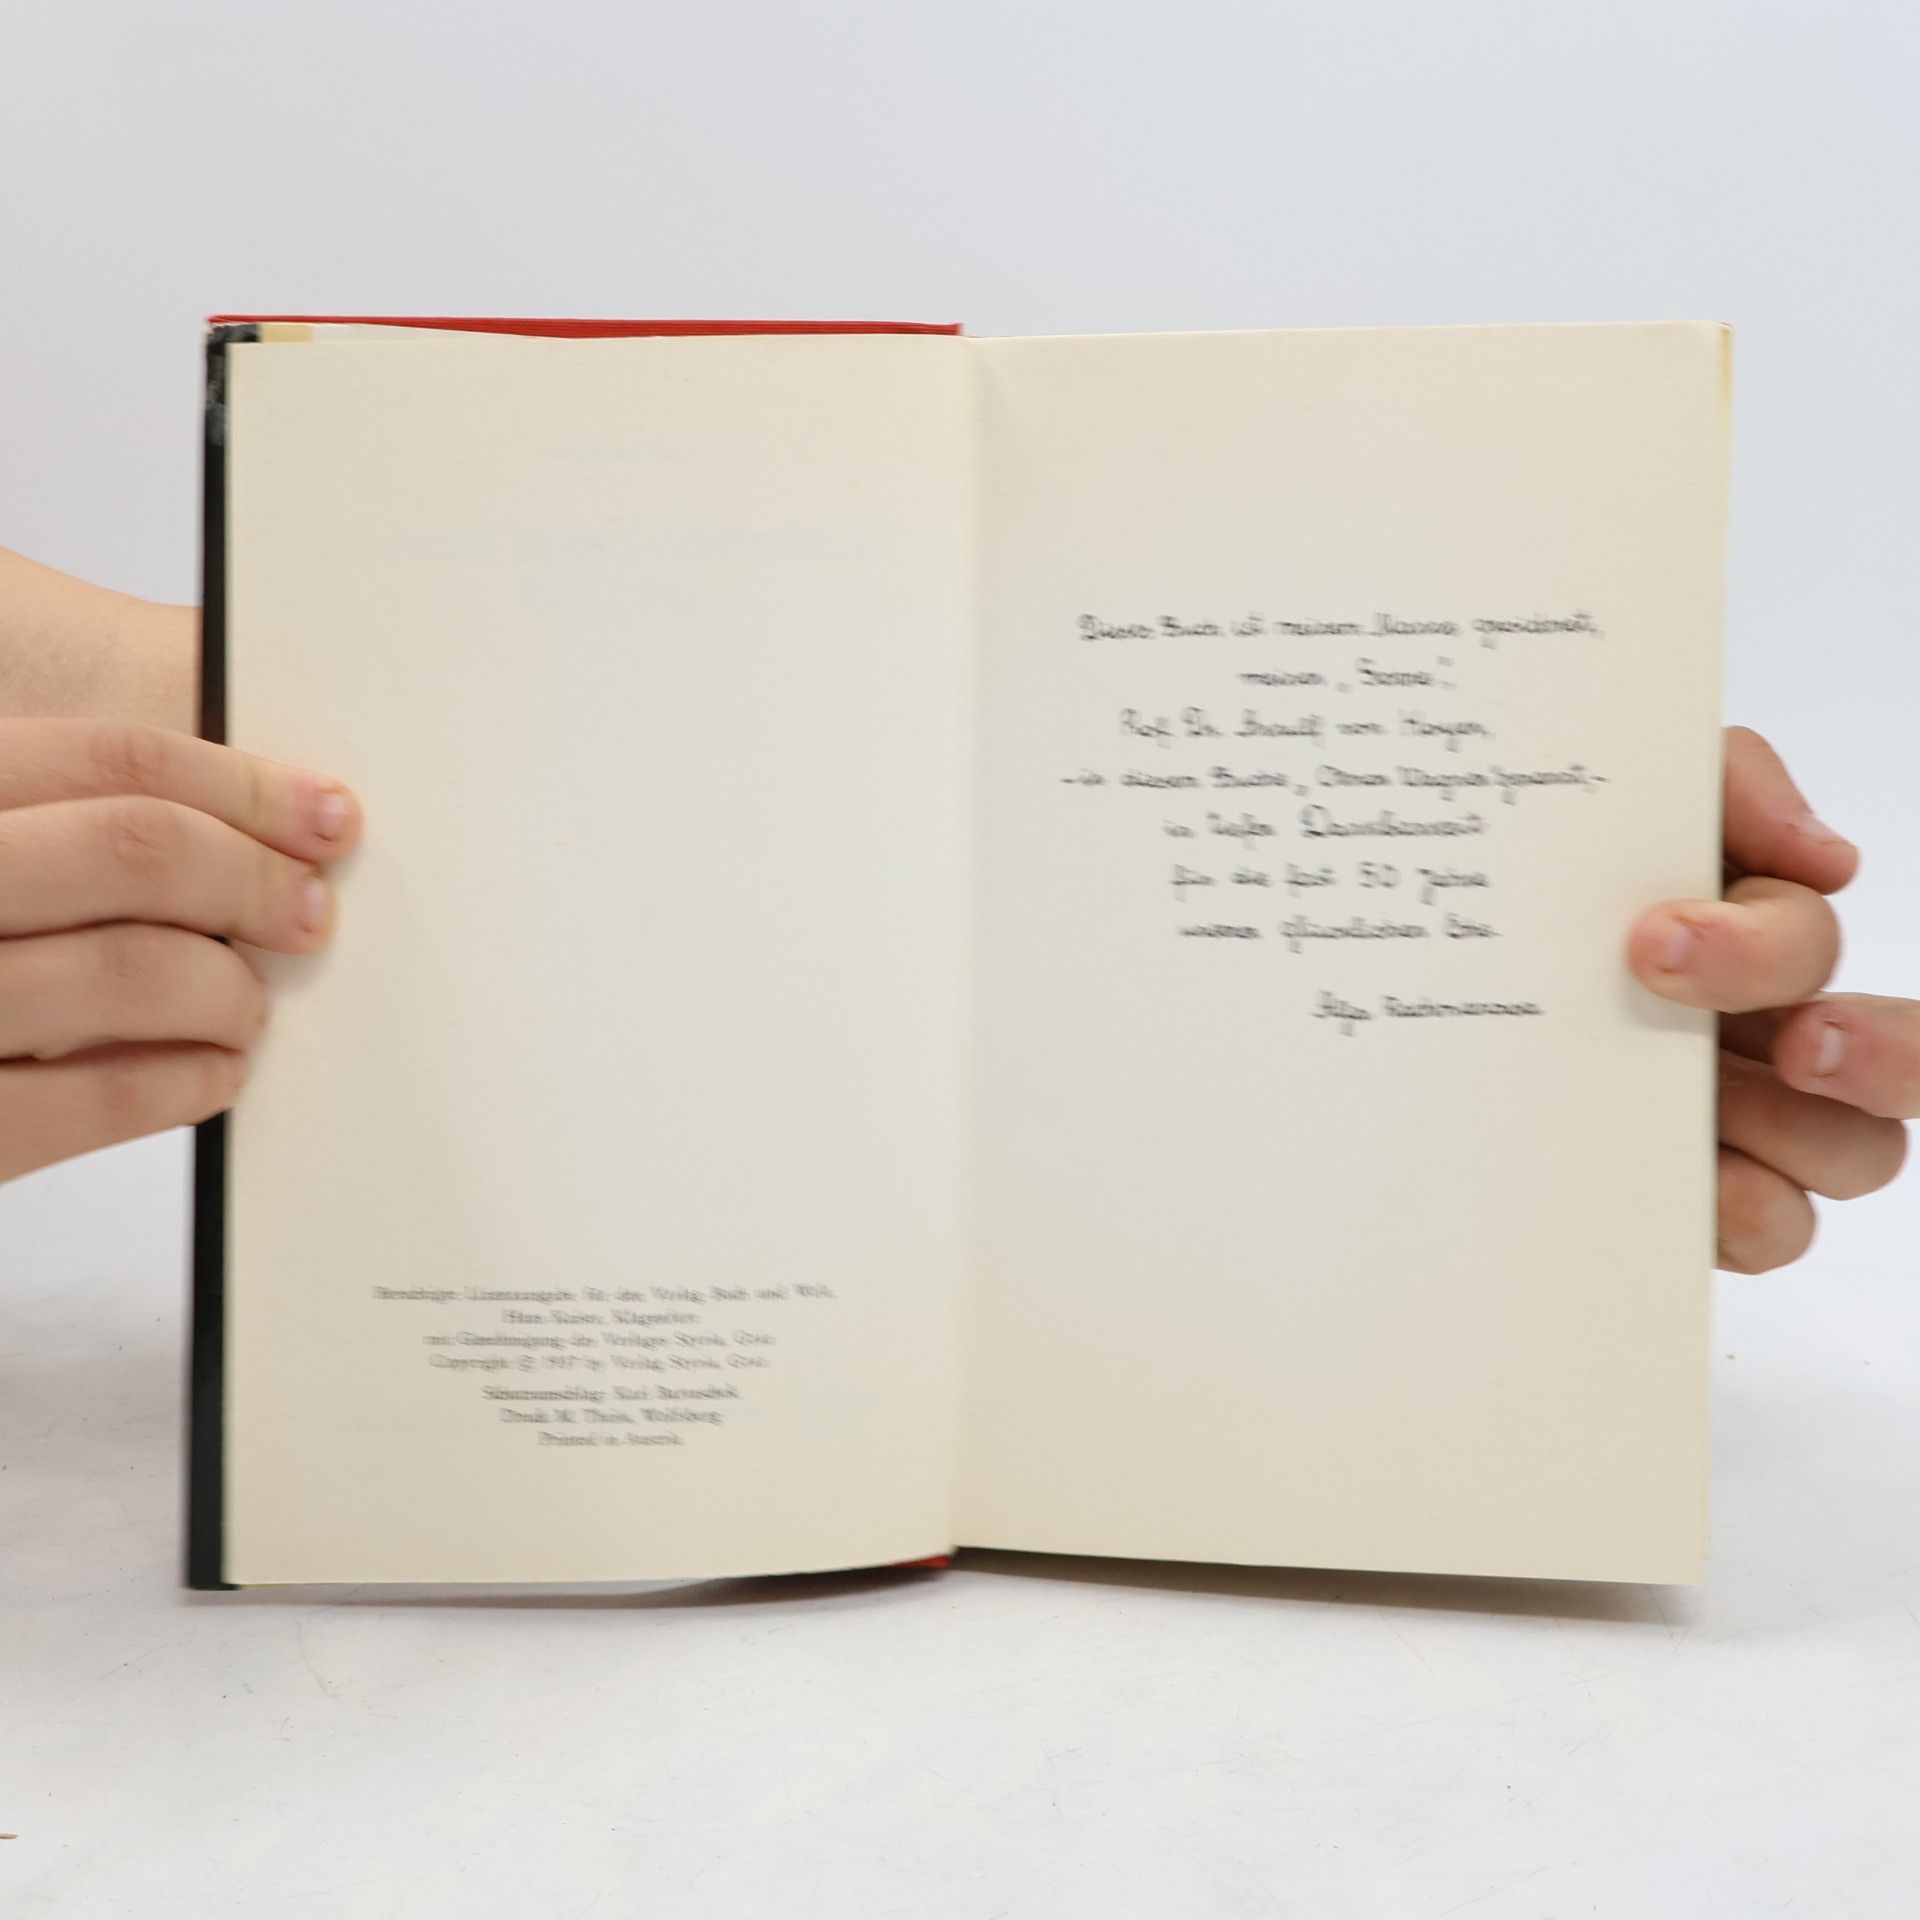 Berechtigte Lizenzausgabe für den Verlag Buch und Welt,
Hans Kaiser, Klagenfurt
mit Genehmigung des Verlages Styria, Graz
Copyright © by Verlag Styria, Graz
Schutzumschlag: Karl
Druck: M. Theiss, Wolfsberg
Printed in Austria
Dieses Buch ist meinem Manne gewidmet,
meiner „Sonne“,
Prof. Dr. Arnulf von Hoyer,
– in diesem Buche „Otmar Wagner“ genannt, –
in tiefer Dankbarkeit
für die fast 50 Jahre
unserer glücklichen Ehe.
Alja Rachmanowa